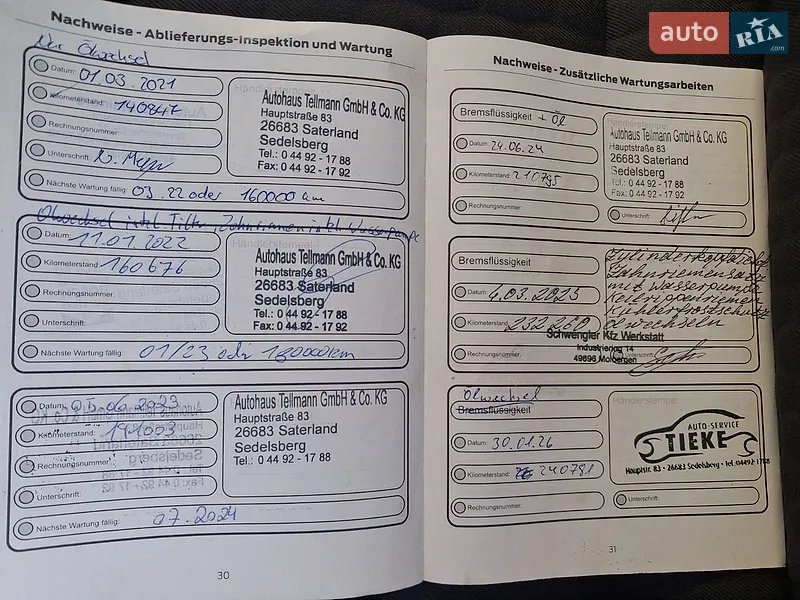 auto RIA .com
Nachweise - Ablieferungs-Inspektion und Wartung
Nur Ölwechsel
Datum: 01.03.2021
Kilometerstand: 140847
Rechnungsnummer:
Unterschrift:
Nächste Wartung fällig: 03.22 oder 160000 km
Händlerstempel
Autohaus Tellmann GmbH & Co. KG
Hauptstraße 83
26683 Saterland
Sedelsberg
Tel.: 0 44 92 - 17 88
Fax: 0 44 92 - 17 92
Ölwechsel inkl. Filter, Zahnriemen inkl. Wasserpumpe
Datum: 11.01.2022
Kilometerstand: 160676
Rechnungsnummer:
Unterschrift:
Nächste Wartung fällig: 01/23 oder 180000 km
Händlerstempel
Autohaus Tellmann GmbH & Co. KG
Hauptstraße 83
26683 Saterland
Sedelsberg
Tel.: 0 44 92 - 17 88
Fax: 0 44 92 - 17 92
Datum: 05.06.2023
Kilometerstand: 191003
Rechnungsnummer:
Unterschrift:
Nächste Wartung fällig: 07.2024
Autohaus Tellmann GmbH & Co. KG
Hauptstraße 83
26683 Saterland
Sedelsberg
Tel.: 0 44 92 - 17 88
30
Nachweise - Zusätzliche Wartungsarbeiten
Bremsflüssigkeit + Öl
Datum: 24.06.24
Kilometerstand: 210795
Rechnungsnummer:
Händlerstempel
Autohaus Tellmann GmbH & Co. KG
Hauptstraße 83
26683 Saterland
Sedelsberg
Tel.: 0 44 92 - 17 88
Fax: 0 44 92 - 17 92
Unterschrift:
Bremsflüssigkeit
Datum: 4.03.2025
Kilometerstand: 232260
Rechnungsnummer:
Zahnriemensatz
mit Wasserpumpe
Keilrippenriemen
Kühlerfrostschutz
ölwechseln
Schwengler Kfz Werkstatt
Industriering 14
49696 Molbergen
Ölwechsel
Bremsflüssigkeit
Datum: 30.01.26
Kilometerstand: 240781
Rechnungsnummer:
Händlerstempel
AUTO-SERVICE
TIEKE
Hauptstr. 83 · 26683 Sedelsberg · Tel. 04492-1788
Unterschrift:
31